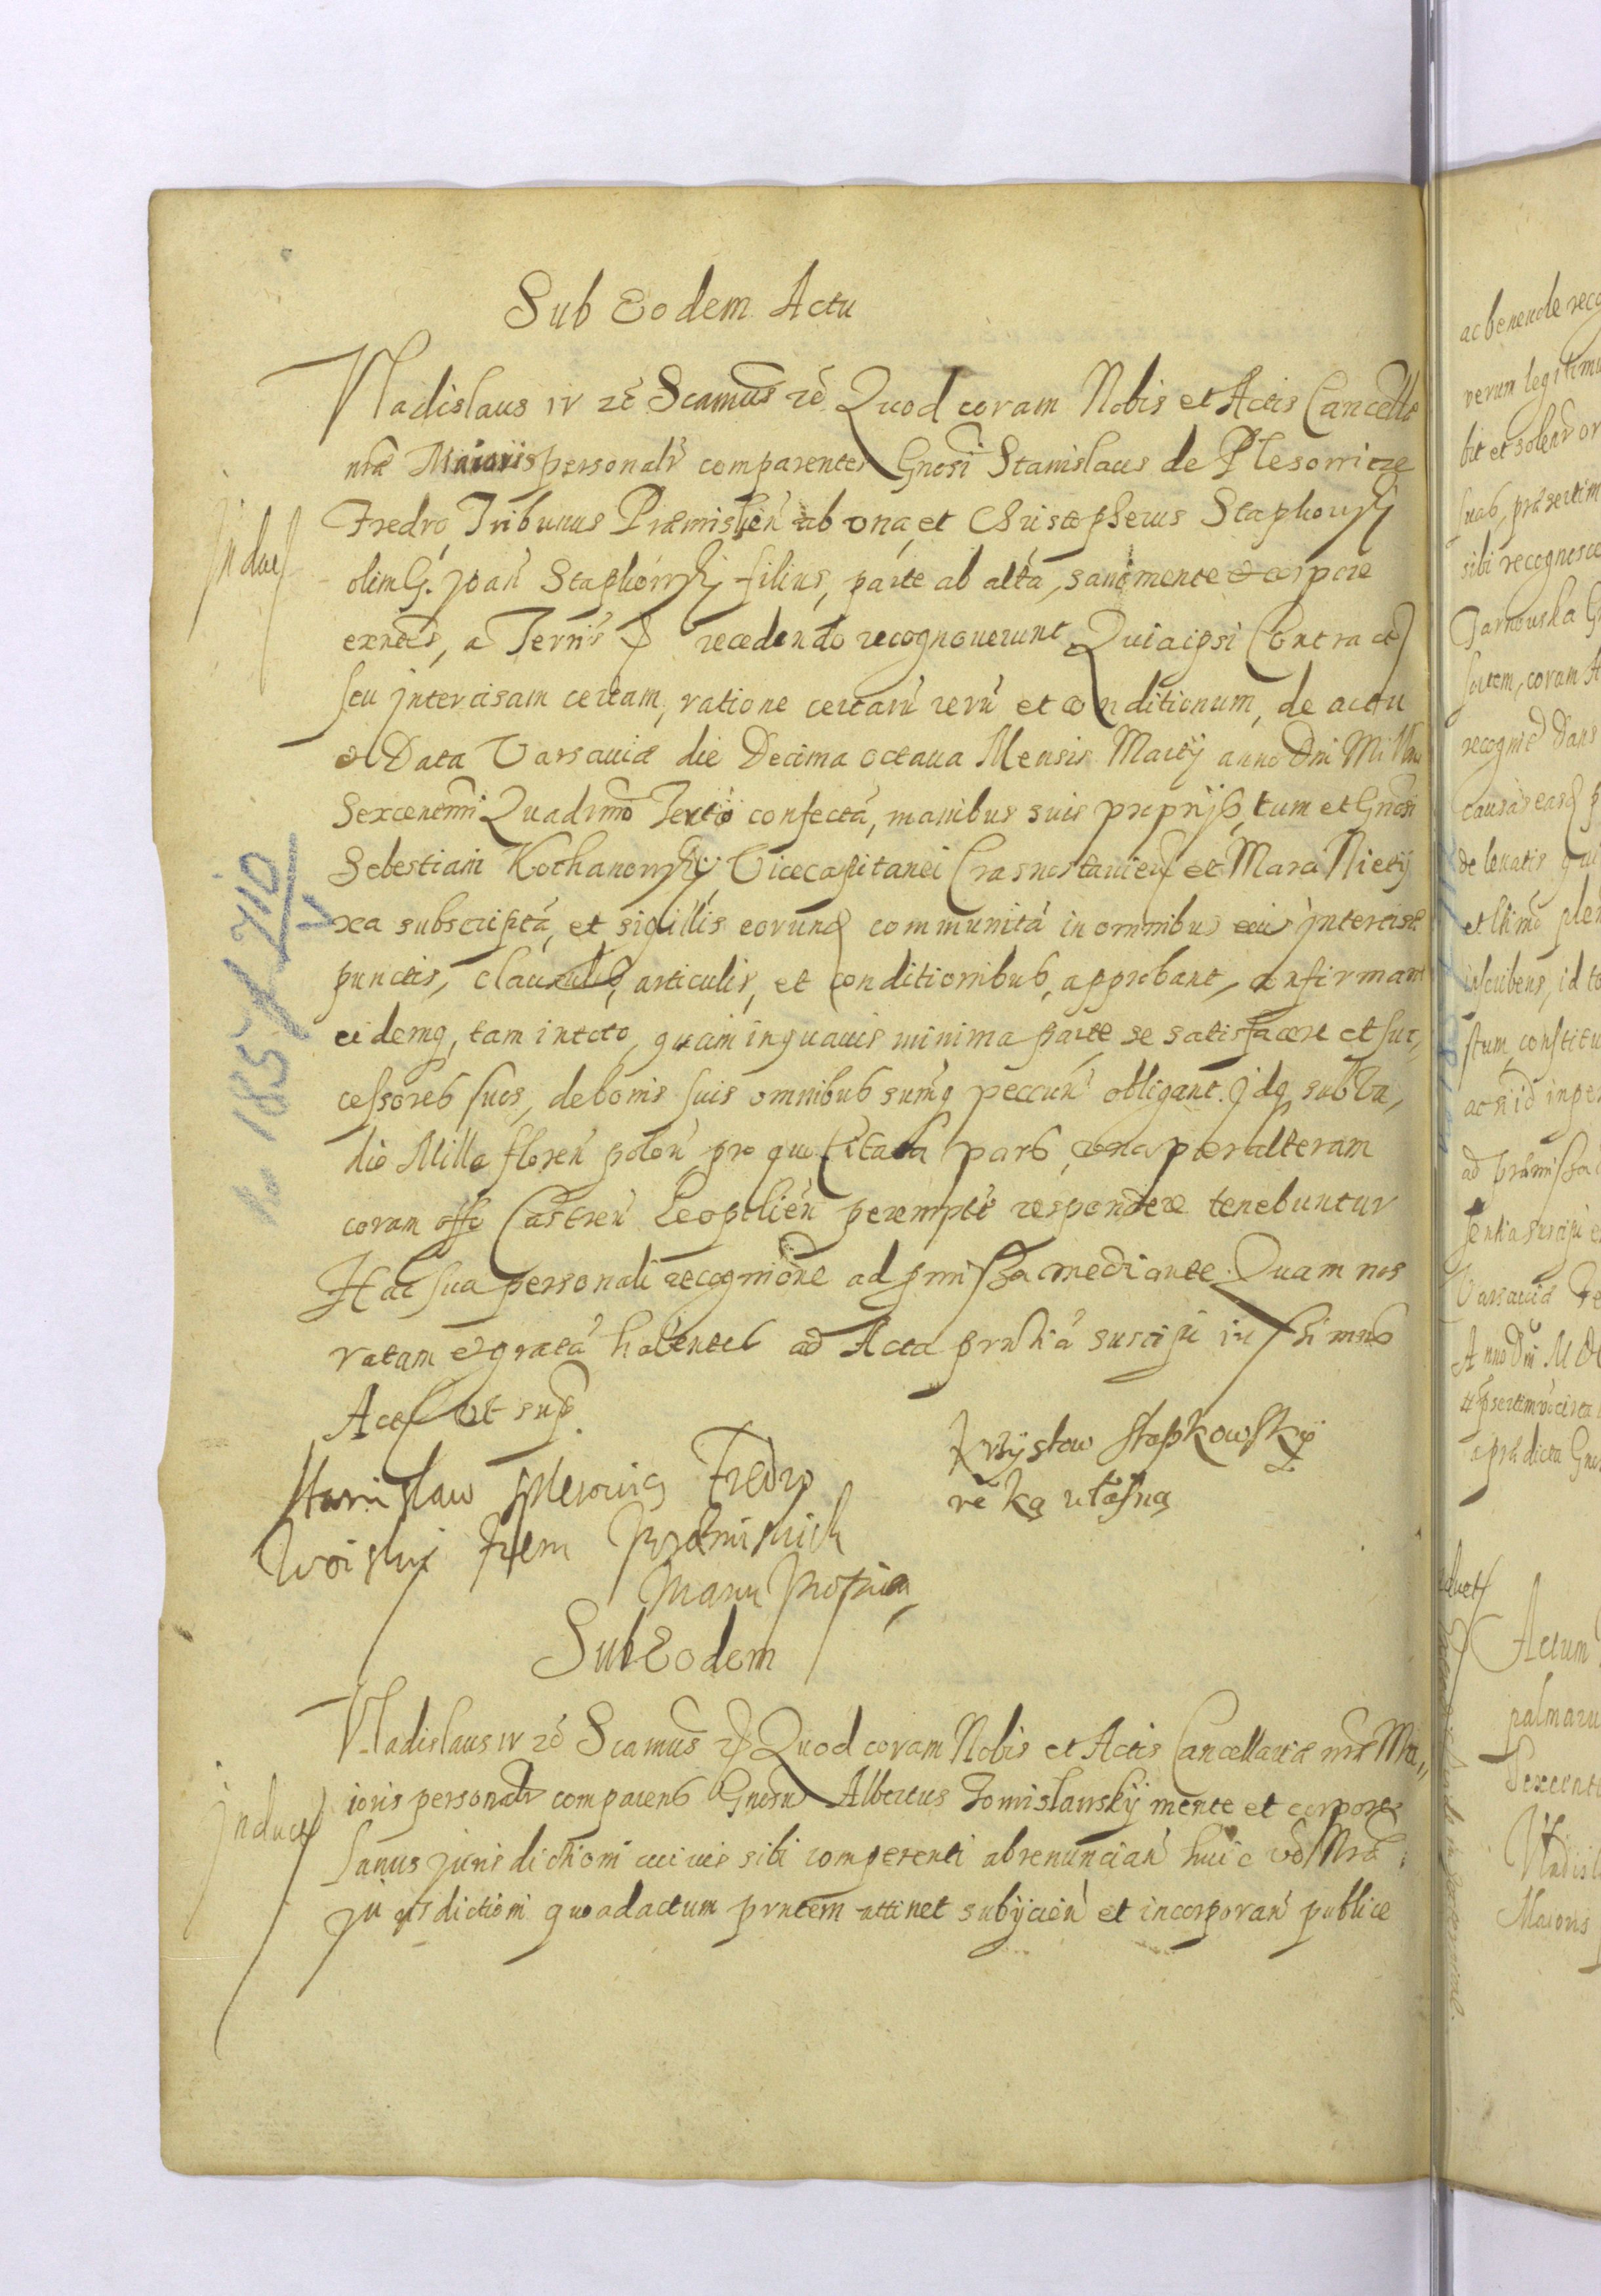 Sub Eodem Actu
Vladislaus IV rē Scamus rē Quod coram Nobis et Actis Cancell
nrae Maioris personalr comparentes Gnosi Stanislaus de Plesorricze
Fredro, Tribunus Praemislien ab una, et Christopherus Stapkowski
olim G. Joan Stapkowski filius, parte ab altā, sani mente et corpore
exntes, a Terris recedendo recognouerunt Quia ipsi Contract
seu jntercisam certam, ratione certarū rerū et conditionum, de actu
et Data Varsauiae die Decima octaua Mensis Martij anno Dni Mill
Sexcenmi Quadrmo Tertio confectā, manibus suis proprijs, tum et Gnosi
Sebestiani Kochanowskij Vicecapitanei Crasnostauien et Mara Nietij
xa subscriptā, et sigillis eorund communitā in omnibus eius jntercisae
punctis, clausulis, articulis, et conditionibus, approbant, confirmant
eidemq, tam in toto, quam in quauis minima parte se satisfacere et suc,
cessores suos, de bonis suis omnibus sumq peccun obligant. Jdq sub Va,
dio Mille floren polon pro quo citata pars, una per alteram
coram offo Castren Leopolien perempte respondere tenebuntur
Hac sua personali recognione ad pmissa mediante. Quam nos
ratam et gratā habentes ad Acta prntia suscipi iussimus
Act ut sup.
Stanislaw Fredro
Krzystow Stapkowsky
ręką włásną
Woiski Ziem Przemiskich
Manu propria
Sub Eodem
Vladislaus IV rē Scamus Quod coram Nobis et Actis Cancellariae nrae Ma,,
ioris personalr comparens Gnosus Albertus Tomislawskij mente et corpore
sanus jurisdictioni cuiuis sibi competenti abrenuncian huic vō Nrae
jurisdictioni quo ad actum prntem attinet subijcien et incorporan publice
Jnduc
Jnduct
1857 210
V
ac benenole reco
verum legitimu
bit et solen or
suas, praesertim
sibi recognosce
Tarnouska G
recognit Dans
de leuatis qui
inscribens, id to
stum, constitu
ac si id inper
ad praemissa
Varsauiae
Anno Dni MDC
Actum
palmaru
Sexcent
Vladisl
Maioris